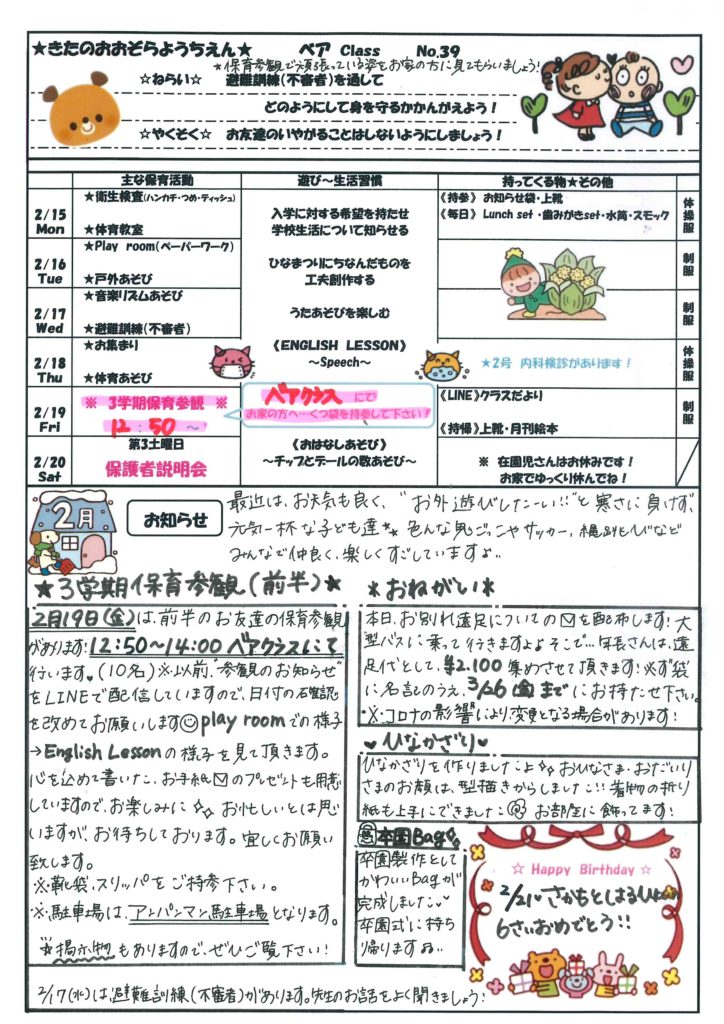 ★きたのおおぞらようちえん★　ベア Class　No.39
★保育参観で頑張っている姿をお家の方に見てもらいましょう!
☆ねらい☆　避難訓練(不審者)を通して
どのようにして身を守るかかんがえよう!
☆やくそく☆　お友達のいやがることはしないようにしましょう!
主な保育活動　遊び～生活習慣　持ってくる物★その他
2/15 Mon
★衛生検査(ハンカチ・つめ・ティッシュ)
★体育教室
入学に対する希望を持たせ
学校生活について知らせる
《持参》 お知らせ袋・上靴
《毎日》 Lunch set ・歯みがきset・水筒・スモック
体操服
2/16 Tue
★Play room(ペーパーワーク)
★戸外あそび
ひなまつりにちなんだものを
工夫創作する
制服
2/17 Wed
★音楽リズムあそび
★避難訓練(不審者)
うたあそびを楽しむ
制服
2/18 Thu
★お集まり
★体育あそび
《ENGLISH LESSON》
～Speech～
★2号 内科検診があります!
体操服
2/19 Fri
※ 3学期保育参観 ※
12:50～
ベアクラス にて
お家の方へ…くつ袋を持参して下さい!
《LINE》クラスだより
《持帰》上靴・月刊絵本
制服
2/20 Sat
第3土曜日
保護者説明会
《おはなしあそび》
～チップとデールの数あそび～
※ 在園児さんはお休みです!
お家でゆっくり休んでね!
2月
お知らせ
最近は、お天気も良く、"お外遊びしたーい!!"と寒さに負けず、
元気一杯な子ども達★ 色んな鬼ごっこやサッカー、縄跳びなど
みんなで仲良く、楽しくすごしていますよ♪
★3学期保育参観(前半)★
2月19日(金)は、前半のお友達の保育参観
があります!12:50～14:00 ベアクラスにて
行います。(10名)※以前"参観のお知らせ"
をLINEで配信していますので、日付の石確認
を改めてお願いします play roomでの様子
→English Lessonの様子を見て頂きます。
心を込めて書いた、お手紙のプレゼントも用意
していますので、お楽しみに お忙しいとは思
いますが、お待ちしております。宜しくお願い
致します。
※靴袋、スリッパをご持参下さい。
※駐車場は、アンパンマン駐車場となります。
★掲示物もありますので、ぜひご覧下さい!
＊おねがい＊
本日、お別れ遠足についてのを配布します!大
型バスに乗って行きますよ♪そこで…年長さんは、遠
足代として、¥2,100 集めさせて頂きます!必ず袋
に名記のうえ、3/26(金)までにお持たせ下さい。
※コロナの影響により、変更となる場合があります!
♥ひなかざり♥
ひなかざりを作りましたよ☆ おひなさま・おだいり
さまのお顔は、型描きからしました!!着物の折り
紙も上手にできました お部屋に飾ってます!
卒園Bag
卒園製作として
かわいいBagが
完成しました♥
卒園式に持ち
帰ります♪
☆ Happy Birthday ☆
2/21♥さかもとしはるくん
6さいおめでとう!!
2/17(水)は、避難訓練(不審者)があります。先生のお話をよく聞きましょう!